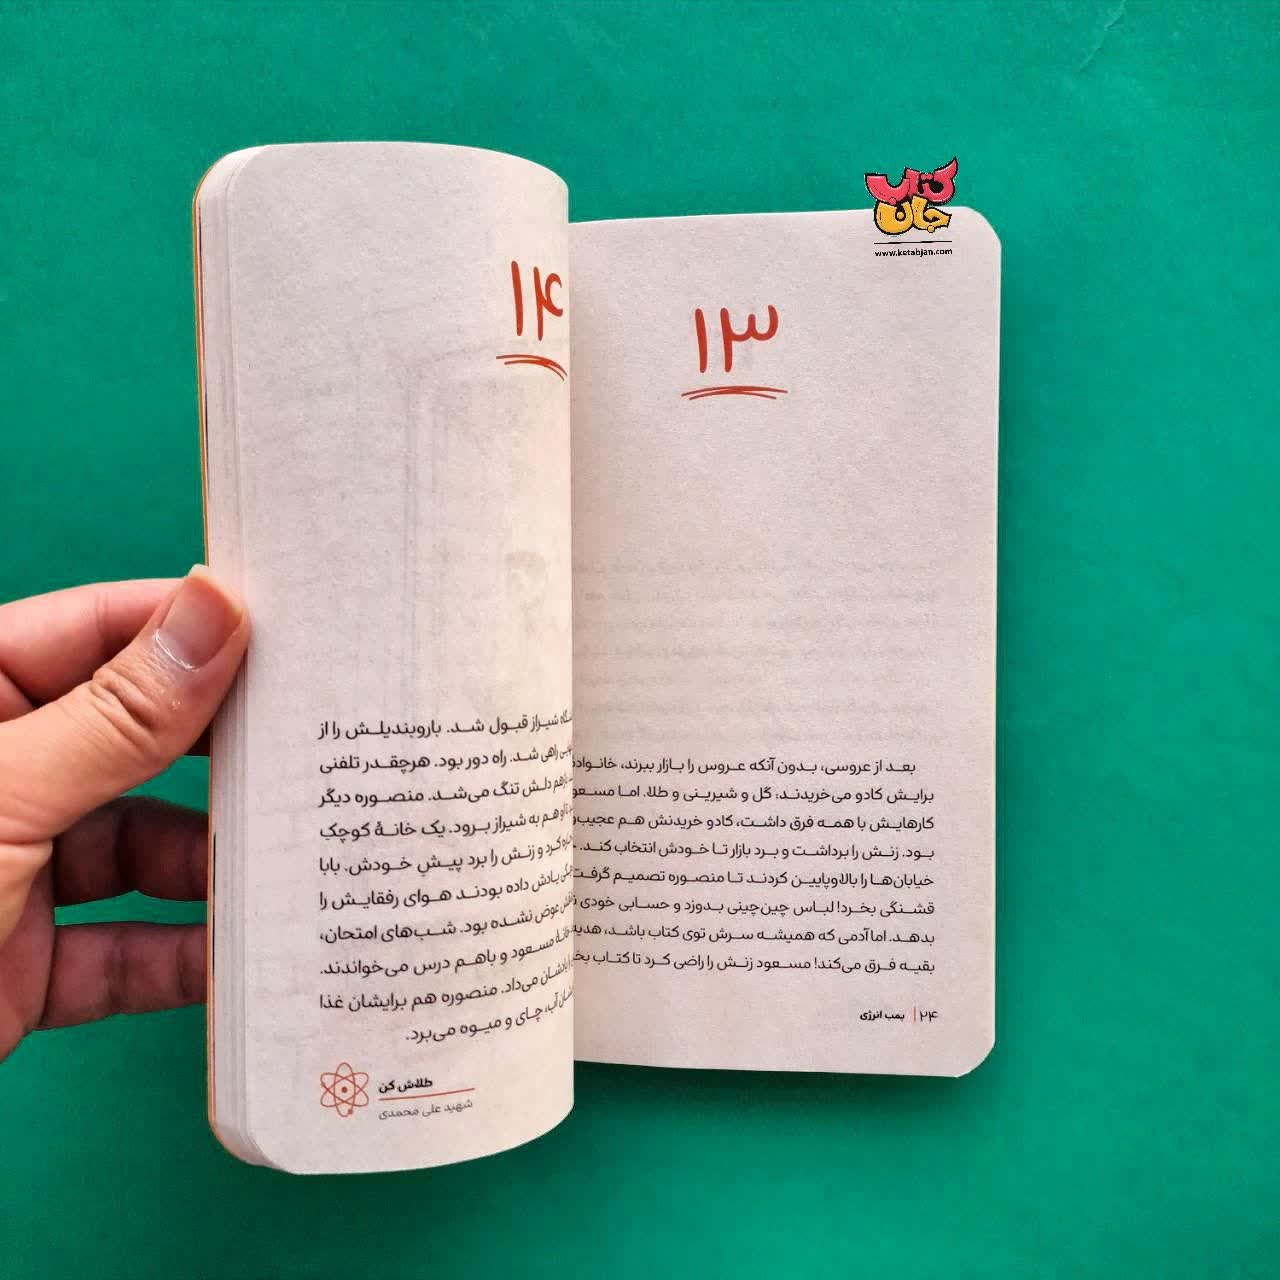 کتاب
جان
www.ketabjan.com
۱۳
بعد از عروسی، بدون آنکه عروس را بازار ببرند، خانواده
برایش کادو می‌خریدند؛ گل و شیرینی و طلا. اما مسعو
کارهایش با همه فرق داشت، کادو خریدنش هم عجیب
بود. زنش را برداشت و برد بازار تا خودش انتخاب کند.
خیابان‌ها را بالاوپایین کردند تا منصوره تصمیم گرفت
قشنگی بخرد! لباس چین‌چینی بدوزد و حسابی خودی
بدهد. اما آدمی که همیشه سرش توی کتاب باشد، هدیه
بقیه فرق می‌کند! مسعود زنش را راضی کرد تا کتاب بخ
۲۴ | بمب انرژی
۱۴
شیراز قبول شد. باروبندیلش را از
راهی شد. راه دور بود. هرچقدر تلفنی
هم دلش تنگ می‌شد. منصوره دیگر
تا او هم به شیراز برود. یک خانهٔ کوچک
کرد و زنش را برد پیشِ خودش. بابا
یادش داده بودند هوای رفقایش را
عوض نشده بود. شب‌های امتحان،
خانهٔ مسعود و باهم درس می‌خواندند.
یادشان می‌داد. منصوره هم برایشان غذا
آب، چای و میوه می‌برد.
طلاش کن
شهید علی محمدی